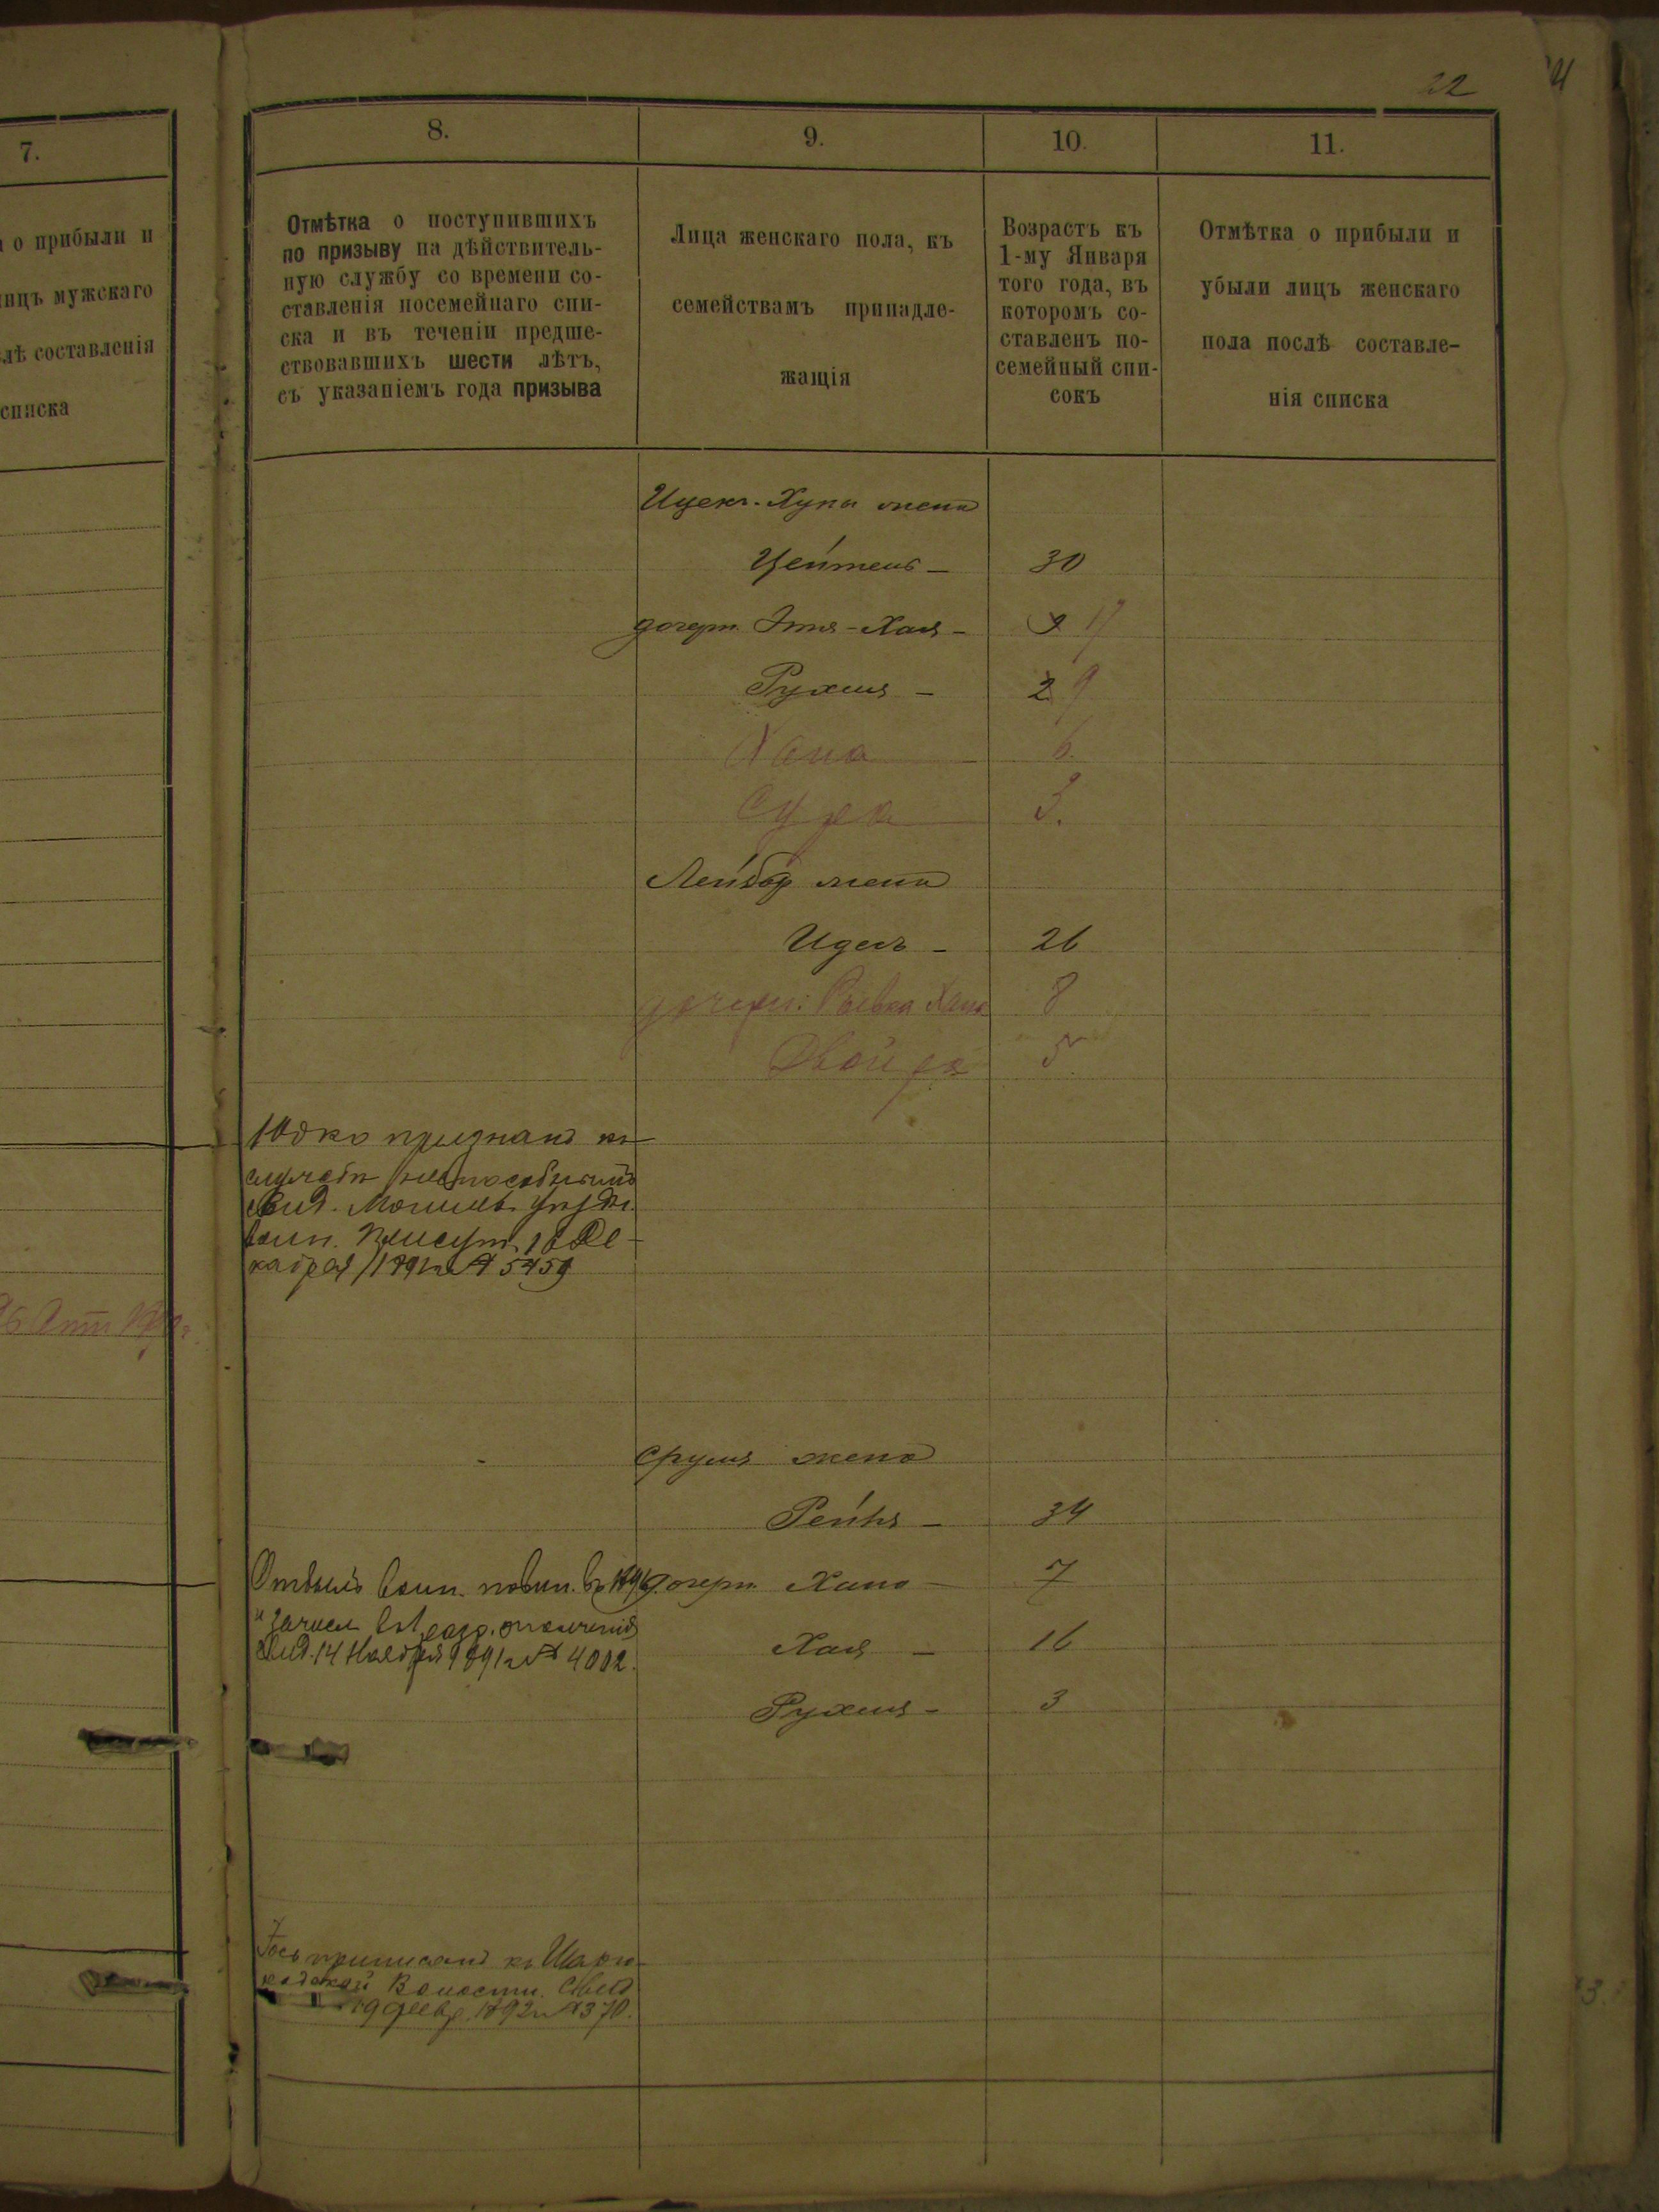 22
7.
о прибыли и
лицъ мужскаго
слѣ составленія
списка
8.
Отмѣтка о поступившихъ
по призыву на дѣйствитель-
ную службу со времени со-
ставленія посемейнаго спи-
ска и въ теченіи предше-
ствовавшихъ шести лѣтъ,
съ указаніемъ года призыва
9.
Лица женскаго пола, къ
семействамъ принадле-
жащія
10.
Возрастъ къ
1-му Января
того года, въ
которомъ со-
ставленъ по-
семейный спи-
сокъ
11.
Отмѣтка о прибыли и
убыли лицъ женскаго
пола послѣ составле-
нія списка
жена
Цейтель - 30
дочери Этя-Хая - 17
Рухля - 2 9
Хана 6.
Сура 3.
Лейбы жена
Идесъ - 26
дочери: Ривка Хана 8
Двойра 5
Юдко признанъ къ
службѣ неспособнымъ
свид. Могилев. уѣзд.
воин. Присут. 18 Де-
кабря 1891 г. № 5459
Сруля жена
Рейзя - 34
Отбылъ воин. повин. въ дочери Хана - 7
и зачисл. въ разр. ополченія
свид. 14 Ноября 1891 г. № 4002.
Хая - 16
Рухля - 3
приписанъ къ Шарго-
родской Волости. Свид.
19 1892 г. № 370.